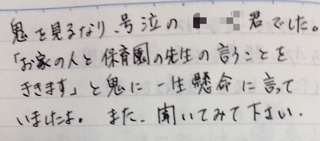 鬼を見るなり、号泣の 君でした。
「お家の人と保育園の先生の言うことを
ききます」と鬼に一生懸命に言って
いましたよ。また、聞いてみて下さい。